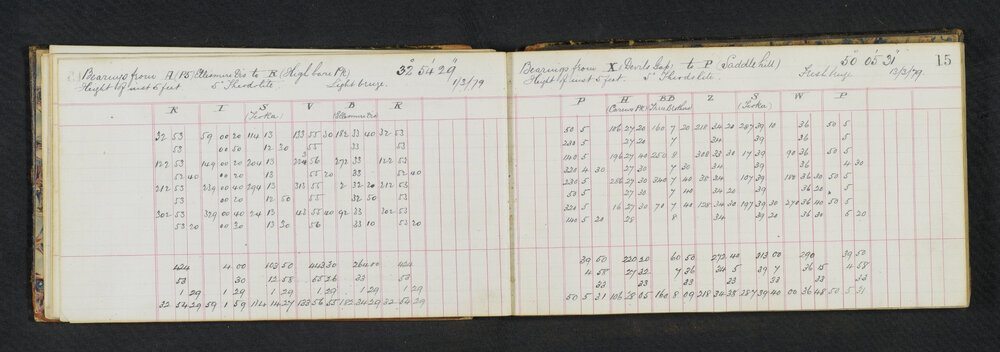 Bearings from A (15) Ellesmere Dis to K (High bare Pk) 32° 54' 29"
Height of inst 5 feet 5" Theodlite. Light breeze. 1/3/79
K I S V B R
(Iroka) (Ellesmere Dis)
32 53 59 00 20 114 13 133 55 30 182 33 40 32 53
53 00 50 12 20 55 33 53
122 53 149 00 20 204 13 56 272 33 122 53
52 40 00 20 13 55 20 33 52 40
212 53 239 00 40 294 13 313 55 2 32 20 212 53
53 00 20 12 50 55 32 50 53
302 53 329 00 40 24 13 43 55 40 92 33 302 53
53 20 00 20 13 20 56 33 10 53 20
424 4 00 103 50 443 30 264 00 424
53 30 12 58 55 26 33 53
1 29 1 29 1 29 1 29 1 29 1 29
32 54 29 59 1 59 114 14 27 133 56 55 182 34 29 32 54 29
15
Bearings from X (Devils Gap) to P (Saddle hill) 50° 05' 31"
Height of inst 5 feet. 5" Theodlite. Fresh breeze 12/3/79.
P H BB Z S W P
(Carews Pk) (Two Brothers) (Iroka)
50 5 106 27 20 160 7 20 218 34 20 287 39 10 36 50 5
230 5 27 20 7 34 39 36 5
140 5 196 27 40 250 8 308 33 30 17 39 90 36 50 5
320 4 30 27 30 7 30 34 39 36 4 30
230 5 286 27 30 340 7 40 38 34 107 39 180 36 30 50 5
50 5 27 30 7 40 34 20 39 36 20 5
320 5 16 27 30 70 7 40 128 34 30 197 39 30 270 36 40 50 5
140 5 20 28 8 34 39 20 36 30 5 20
39 50 220 20 60 50 272 40 313 00 290 39 50
4 58 27 32 7 36 34 5 39 7 36 15 4 58
33 33 33 33 33 33 33
50 5 31 106 28 05 160 8 09 218 34 38 287 39 40 00 36 48 50 5 31